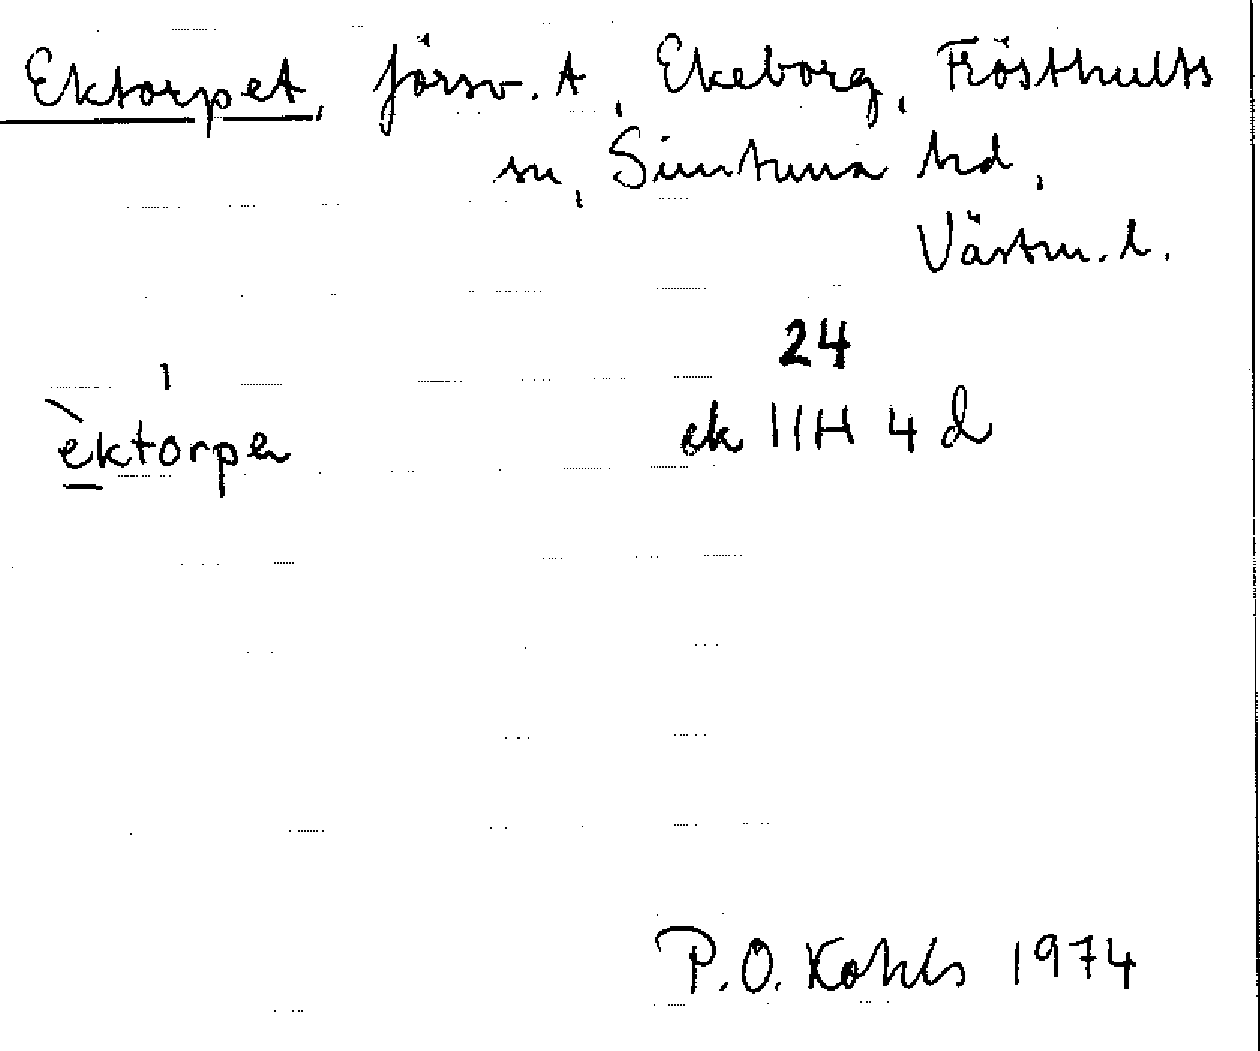 Ektorpet, försv. t, Ekeborg, Frösthults
sn, Simtuna hd,
Västm. l.
24
ektorpe
ek 11H 4 d
P.O. Kohls 1974